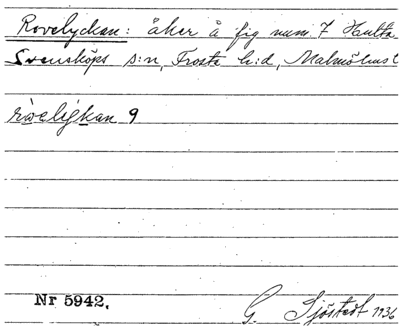 Rovelyckan: åker å fig num 7 Hulta
Svensköps s:n, Frosta h:d, Malmöhus l
9
Nr 5942.
G. Sjöstedt 1936